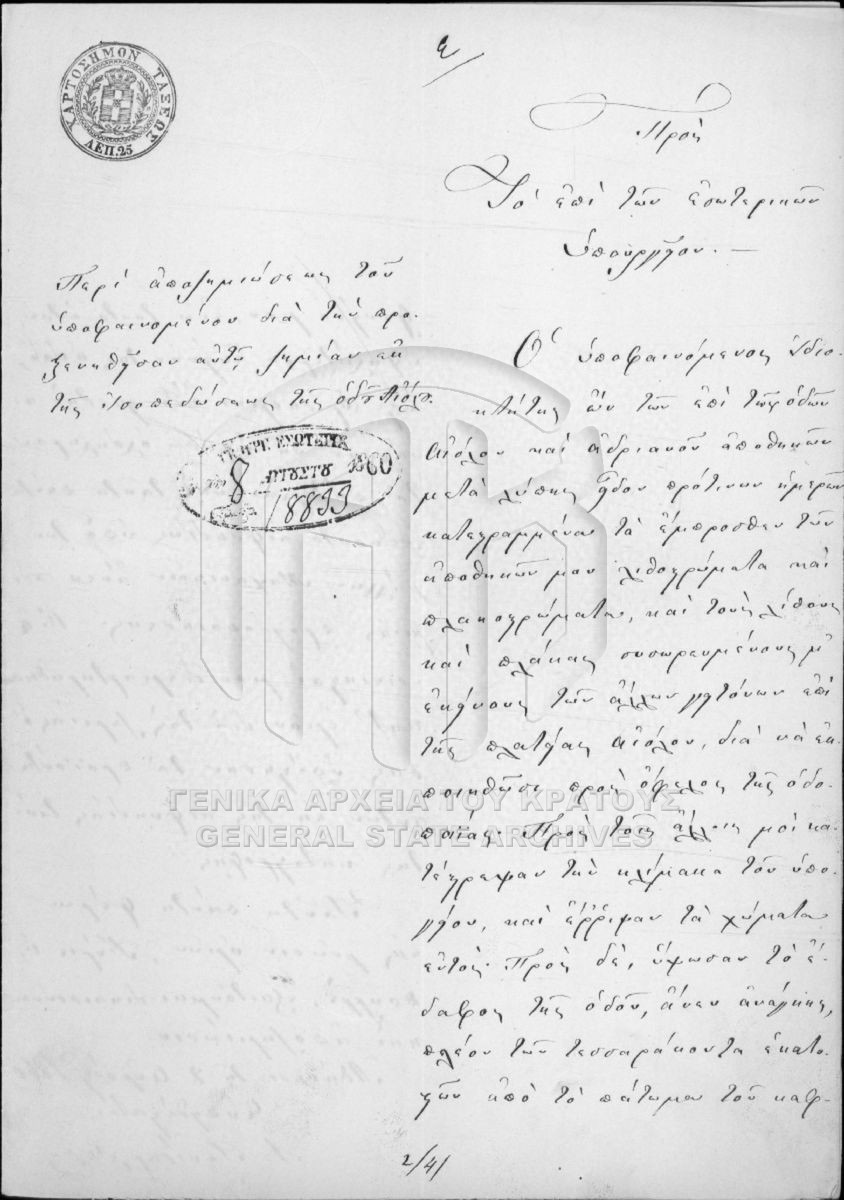 ΧΑΡΤΟΣΗΜΟΝ ΤΑΞΕΩΣ
ΛΕΠ. 25
Πρὸς
Τὸ ἐπὶ τῶν ἐσωτερικῶν
Ὑπουργεῖον. —
Περὶ ἀποζημιώσεως τοῦ
ὑποφαινομένου διὰ τὴν προ-
ξενηθεῖσαν αὐτῷ ζημίαν ἐκ
τῆς ἰσοπεδώσεως τῆς ὁδοῦ Αἰόλου.
ΕΣΩΤΕΡΙΚ
8 ΑΥΓΟΥΣΤΟΥ 1860
18833
Ὁ ὑποφαινόμενος ἰδιο-
κτήτης ὢν τῶν ἐπὶ τῶν ὁδῶν
Αἰόλου καὶ Ἀδριανοῦ ἀποθηκῶν
μετὰ λύπης εἶδον πρό τινων ἡμερῶν
τὰ ἔμπροσθεν τῶν
ἀποθηκῶν μου λιθοστρώματα καὶ
πλακοστρώματα, καὶ τοὺς λίθους
καὶ πλάκας συσωρευμένους μ'
ἐκείνους τῶν ἄλλων γειτόνων ἐπὶ
τῆς πλατείας Αἰόλου, διὰ νὰ ἐκ-
ποιηθῶσι πρὸς ὄφελος τῆς ὁδο-
ποιΐας. Πρὸς τοῖς ἄλλοις μοὶ κα-
τέστρεψαν τὴν κλίμακα τοῦ ὑπο-
γείου, καὶ ἔρριψαν τὰ χώματα
ἐντός. Πρὸς δέ, ὕψωσαν τὸ ἔ-
δαφος τῆς ὁδοῦ, ἄνευ ἀνάγκης,
πλέον τῶν τεσσαράκοντα ἑκατο-
στῶν ἀπὸ τὸ πάτωμα τοῦ καφ-
2/4/
ΓΕΝΙΚΑ ΑΡΧΕΙΑ ΤΟΥ ΚΡΑΤΟΥΣ
GENERAL STATE ARCHIVES